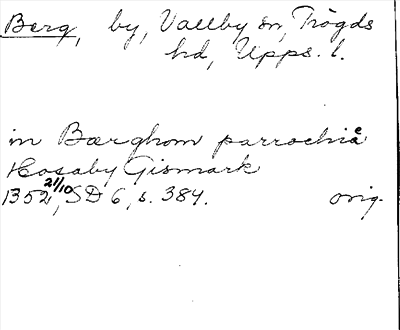 Berg, by, Vallby sn, Trögds
hd, Upps. l.
in Bærghom parrochie
Hosaby Gismark
1352 21/10, SD 6, s. 384. orig.